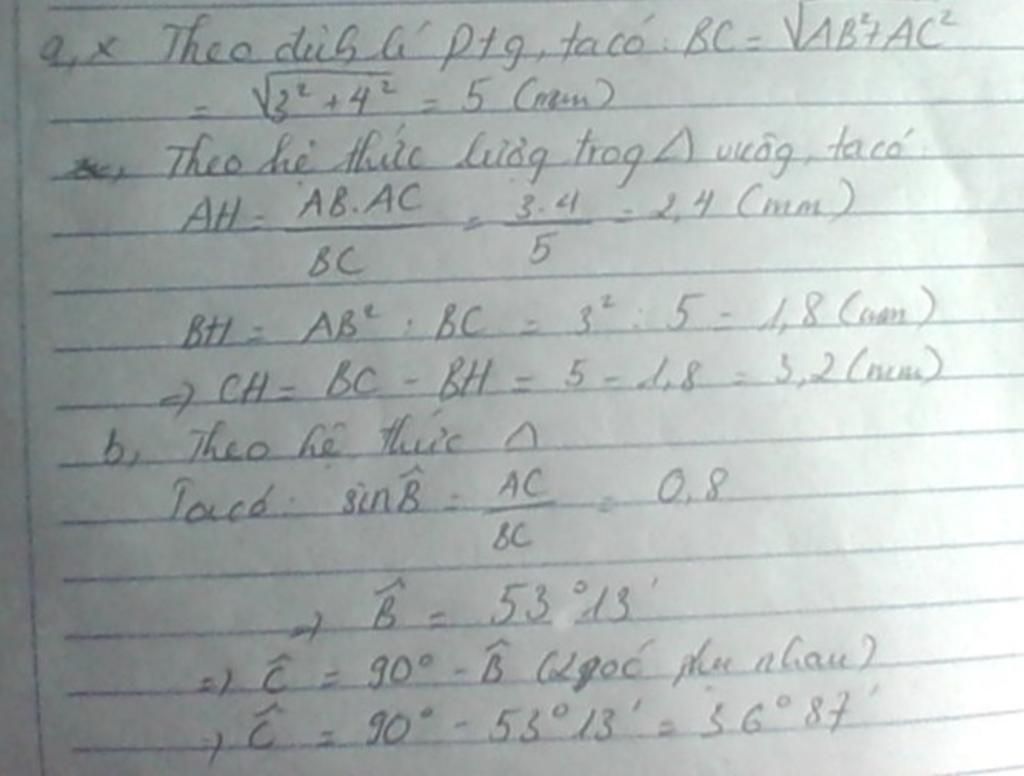 a, x Theo định lí Ptg, ta có: BC = √AB²+AC²
= √3²+4² = 5 (mm)
Theo hệ thức lượng trog Δ vuôg, ta có:
AH = AB.AC / BC = 3.4 / 5 = 2,4 (mm)
BH = AB² : BC = 3² : 5 = 1,8 (mm)
=> CH = BC - BH = 5 - 1,8 = 3,2 (mm)
b, Theo hệ thức Δ
Ta có: sin B̂ = AC / BC = 0,8
=> B̂ = 53°13'
=> Ĉ = 90° - B̂ (2 góc phụ nhau)
=> Ĉ = 90° - 53°13' = 36°87'